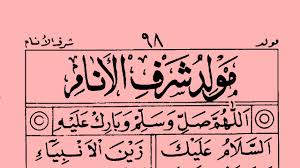 مولد ٩٨ شرف الأنام
مَوْلِدُ شَرَفِ الْأَنَامِ
اَللّٰهُمَّ صَلِّ وَسَلِّمْ وَبَارِكْ عَلَيْهِ
اَلسَّلَامُ عَلَيْكَ زَيْنَ الْأَنْبِيَاءِ